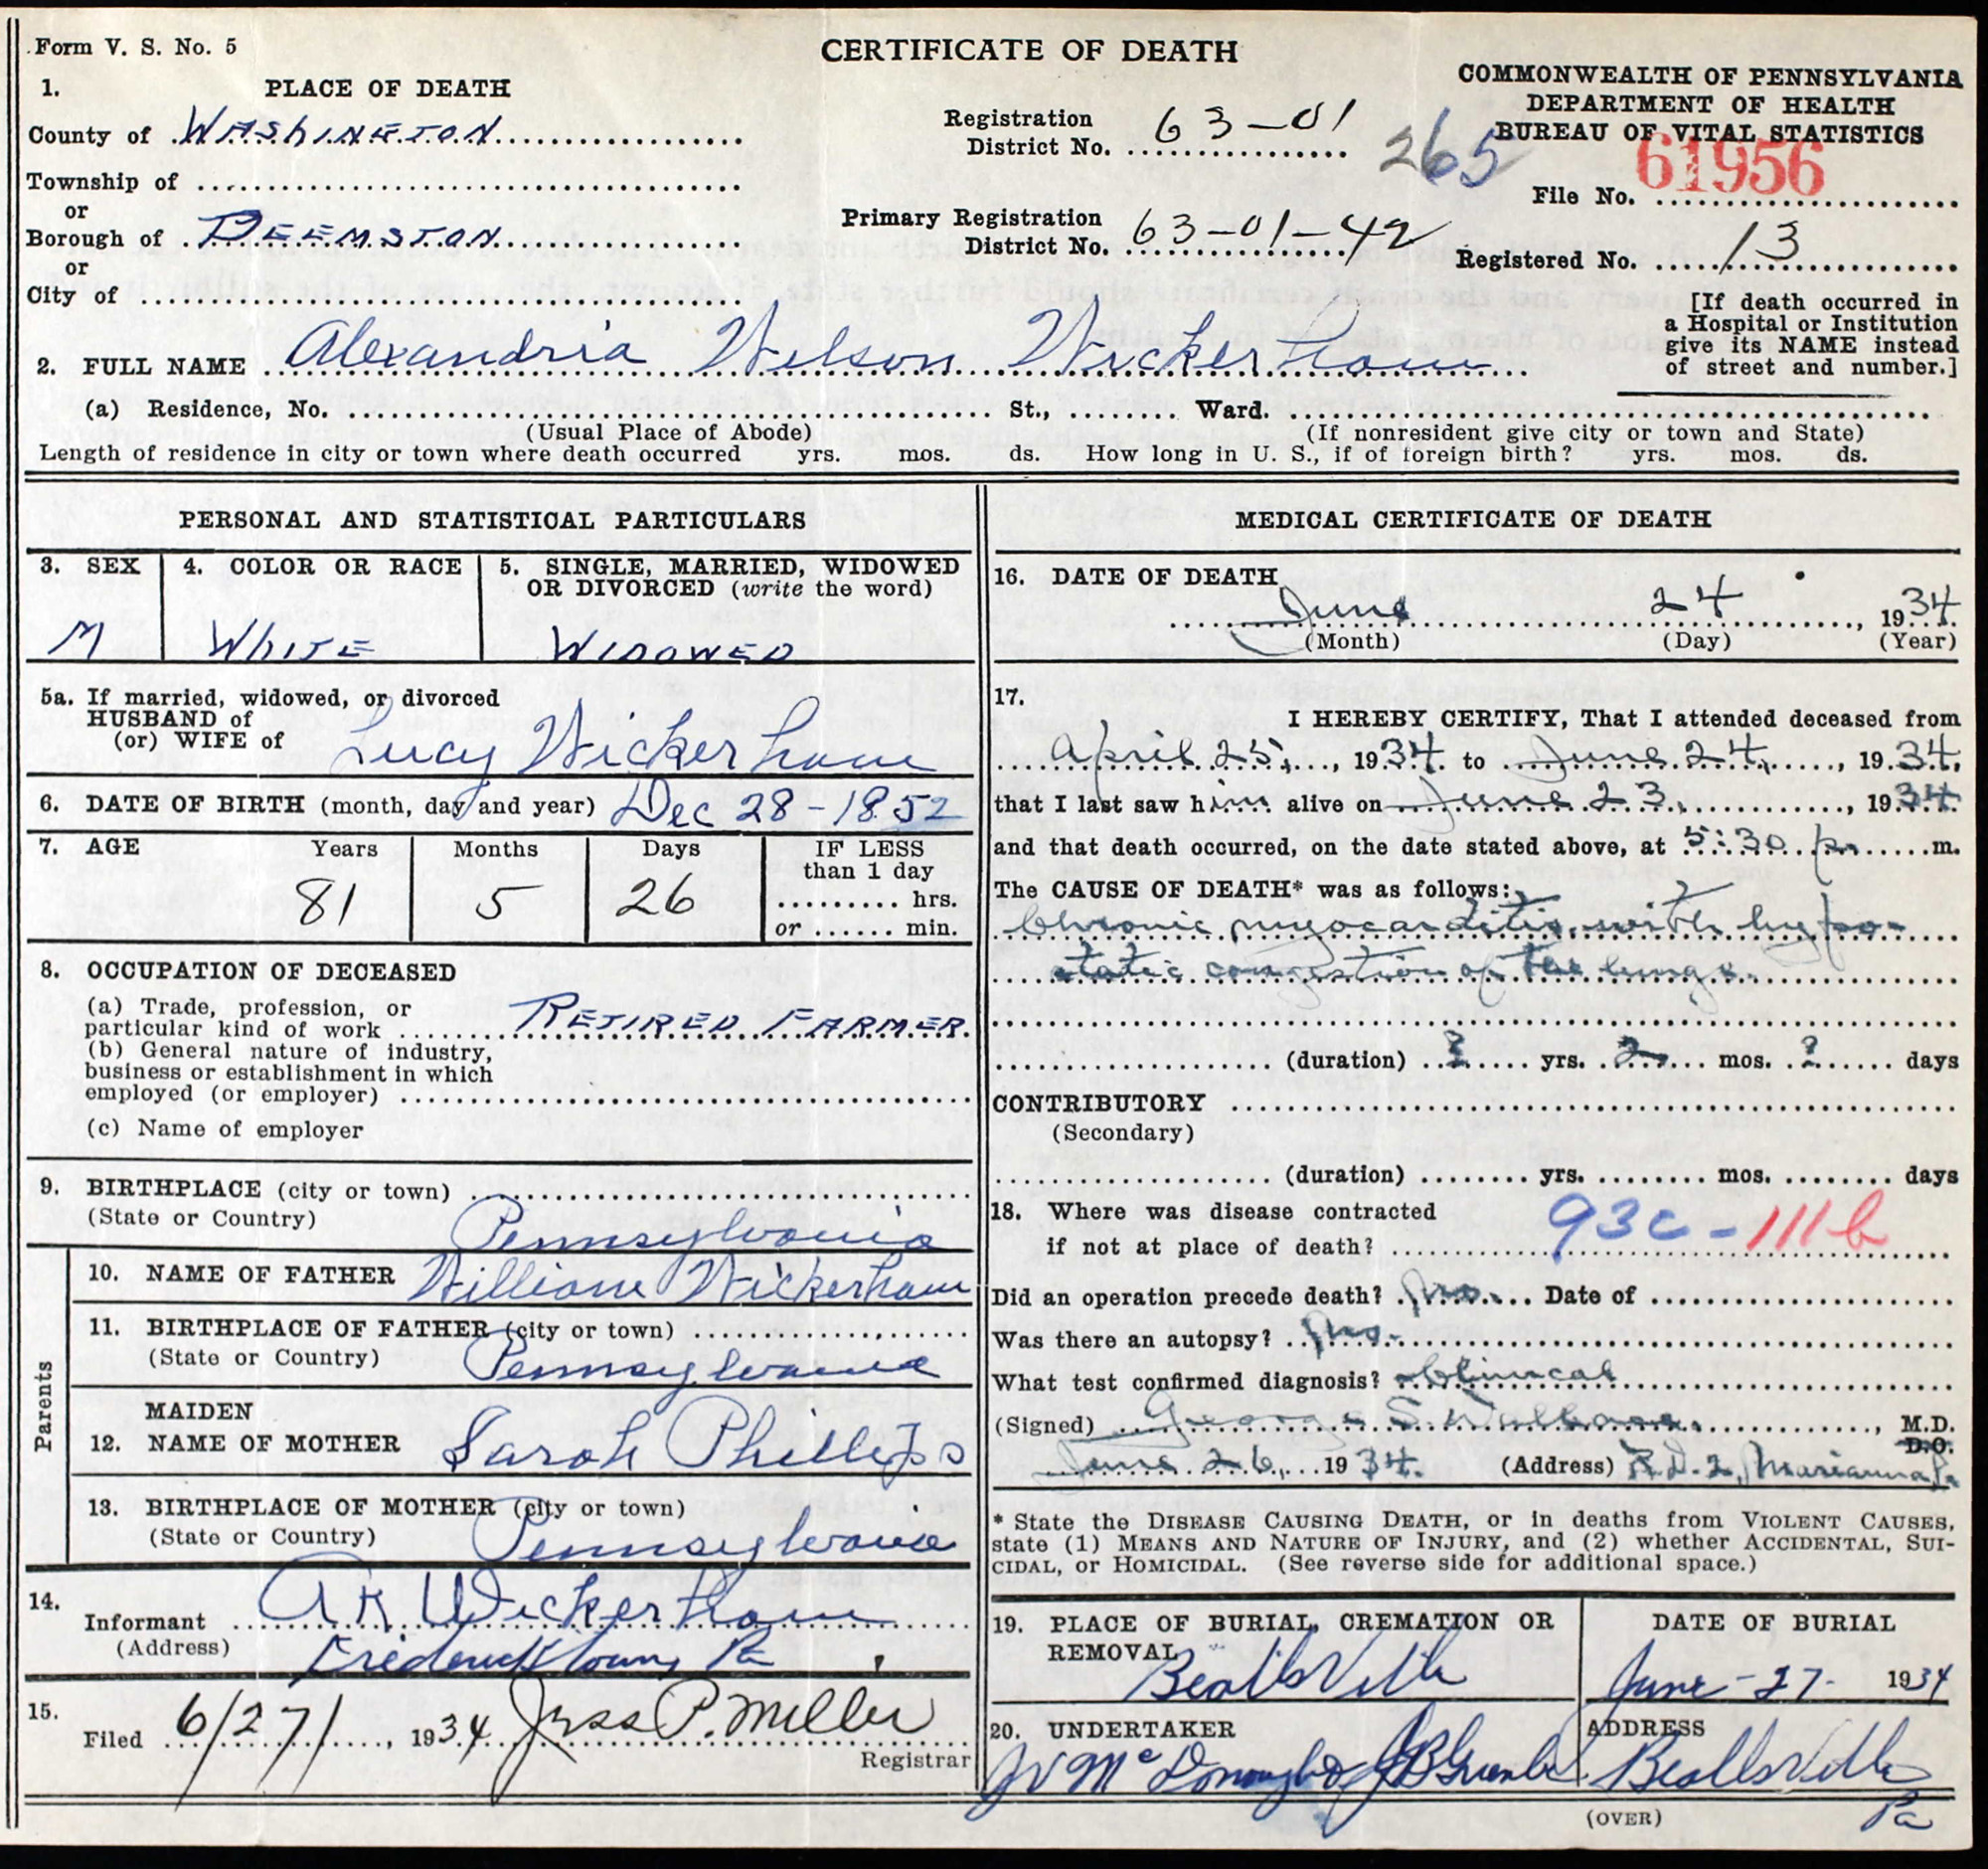 Form V. S. No. 5
CERTIFICATE OF DEATH
COMMONWEALTH OF PENNSYLVANIA
DEPARTMENT OF HEALTH
BUREAU OF VITAL STATISTICS
1. PLACE OF DEATH
County of WAShINGTON
Registration District No. 63-01
265
61956
File No.
Township of
or
Borough of DEEMSTON
Primary Registration District No. 63-01-42
Registered No. 13
or
City of
[If death occurred in
a Hospital or Institution
give its NAME instead
of street and number.]
2. FULL NAME Alexandria Wilson Wickerham
(a) Residence, No. St., Ward.
(Usual Place of Abode) (If nonresident give city or town and State)
Length of residence in city or town where death occurred yrs. mos. ds. How long in U. S., if of foreign birth? yrs. mos. ds.
PERSONAL AND STATISTICAL PARTICULARS
3. SEX
M
4. COLOR OR RACE
WhITE
5. SINGLE, MARRIED, WIDOWED
OR DIVORCED (write the word)
WIDOWED
5a. If married, widowed, or divorced
HUSBAND of
(or) WIFE of Lucy Wickerham
6. DATE OF BIRTH (month, day and year) Dec 28-1852
7. AGE Years Months Days IF LESS
than 1 day
81 5 26 hrs.
or min.
8. OCCUPATION OF DECEASED
(a) Trade, profession, or
particular kind of work RETIRED FARMER.
(b) General nature of industry,
business or establishment in which
employed (or employer)
(c) Name of employer
9. BIRTHPLACE (city or town)
(State or Country) Pennsylvania
Parents
10. NAME OF FATHER William Wickerham
11. BIRTHPLACE OF FATHER (city or town)
(State or Country) Pennsylvania
12. MAIDEN
NAME OF MOTHER Sarah Phillips
13. BIRTHPLACE OF MOTHER (city or town)
(State or Country) Pennsylvania
14.
Informant A R Wickerham
(Address) Fredericktown Pa
15.
Filed 6/27/, 1934 Jess P. Miller
Registrar
MEDICAL CERTIFICATE OF DEATH
16. DATE OF DEATH
June 24, 1934
(Month) (Day) (Year)
17.
I HEREBY CERTIFY, That I attended deceased from
April 25, 1934. to June 24, 1934.
that I last saw him alive on June 23, 1934.
and that death occurred, on the date stated above, at 5:30 p. m.
The CAUSE OF DEATH* was as follows:
Chronic myocarditis, with hypo-
static congestion of the lungs.
(duration) ? yrs. 2 mos. ? days
CONTRIBUTORY
(Secondary)
(duration) yrs. mos. days
18. Where was disease contracted
if not at place of death?
93c - 111b
Did an operation precede death? no. Date of
Was there an autopsy? no.
What test confirmed diagnosis? Clinical
(Signed) George S. , M.D.
D.O.
June 26, 1934. (Address) R.D. 2, Marianna, Pa.
* State the DISEASE CAUSING DEATH, or in deaths from VIOLENT CAUSES,
state (1) MEANS AND NATURE OF INJURY, and (2) whether ACCIDENTAL, SUI-
CIDAL, or HOMICIDAL. (See reverse side for additional space.)
19. PLACE OF BURIAL, CREMATION OR
REMOVAL
Beallsville
DATE OF BURIAL
June-27- 1934
20. UNDERTAKER
ADDRESS
Beallsville
Pa
(OVER)